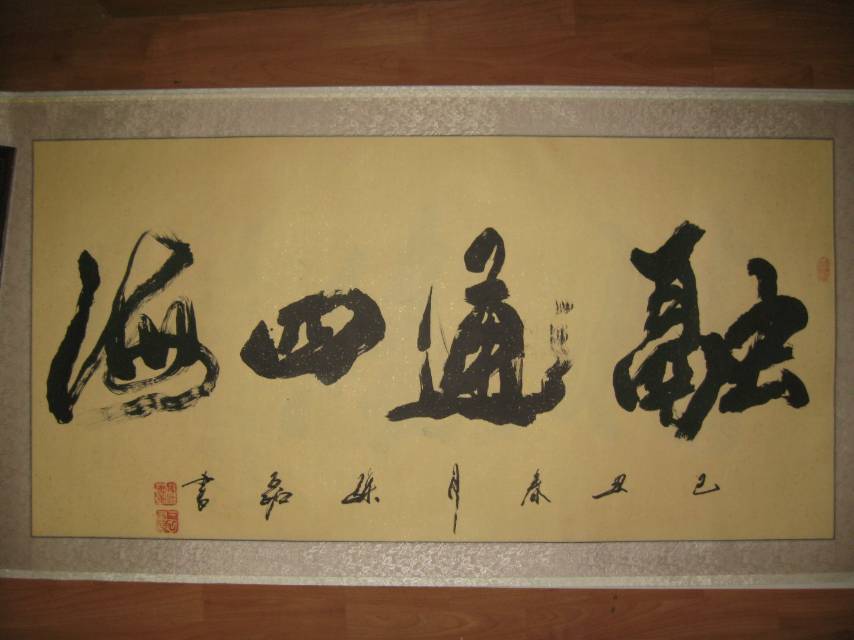 融通四海
己丑春月 磊书